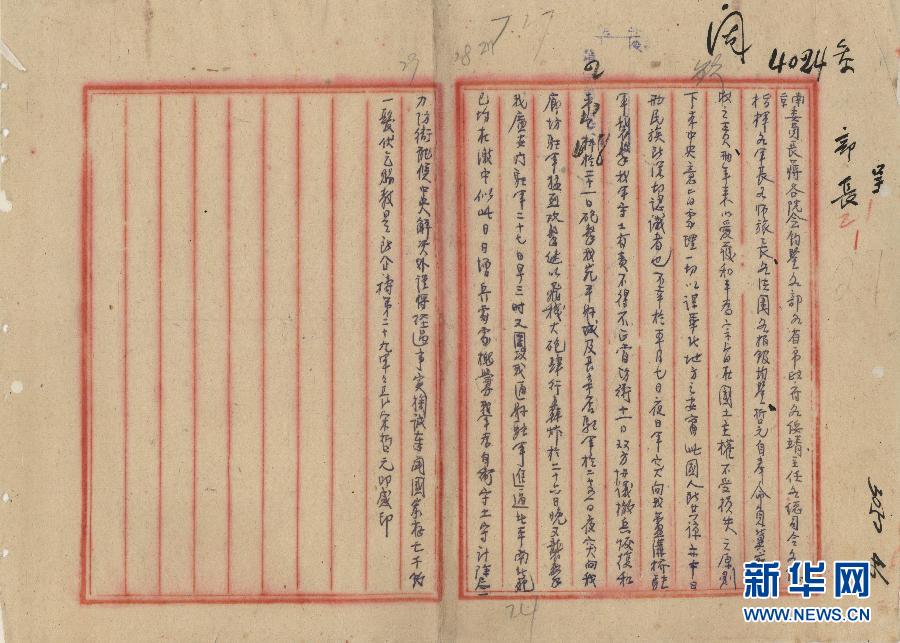 7.17
28 29
29
阅
4024
部長
呈
南京
委員長蔣各院会钧鑒各部各省市政府各绥靖主任各總司令各
指揮各軍長各師旅長各法團各报馆均鑒哲元自奉命負冀
政之責 年来以愛護和平為宗旨在國土主權不受損失之原則
下本中央意旨處理一切以謀華北地方之安寧此國人所共諒亦中日
兩民族所深切認識者也不幸於本月七日夜日軍突向我蘆溝橋駐
軍襲擊我軍守土有責不得不正當防衛十一日双方协議撤兵恢復和
平 料於二十一日砲擊我宛平縣城及長辛店駐軍於二五日夜突向我
廊坊駐軍猛烈攻擊继以飛機大砲肆行轟炸於二十六日晚又襲擊
我廣安门駐軍二十七日早三時又圍攻我通縣駐軍進逼北平南北苑
已均在激中似此日日增兵處處挑釁我軍為自衛守土守計除盡
力防衛聽候中央解决外謹將经過事實掬誠奉聞國家存亡千钧
一髮伏乞賜教是所企禱第二十九軍軍長宋哲元叩感印
24
新华网
WWW.NEWS.CN